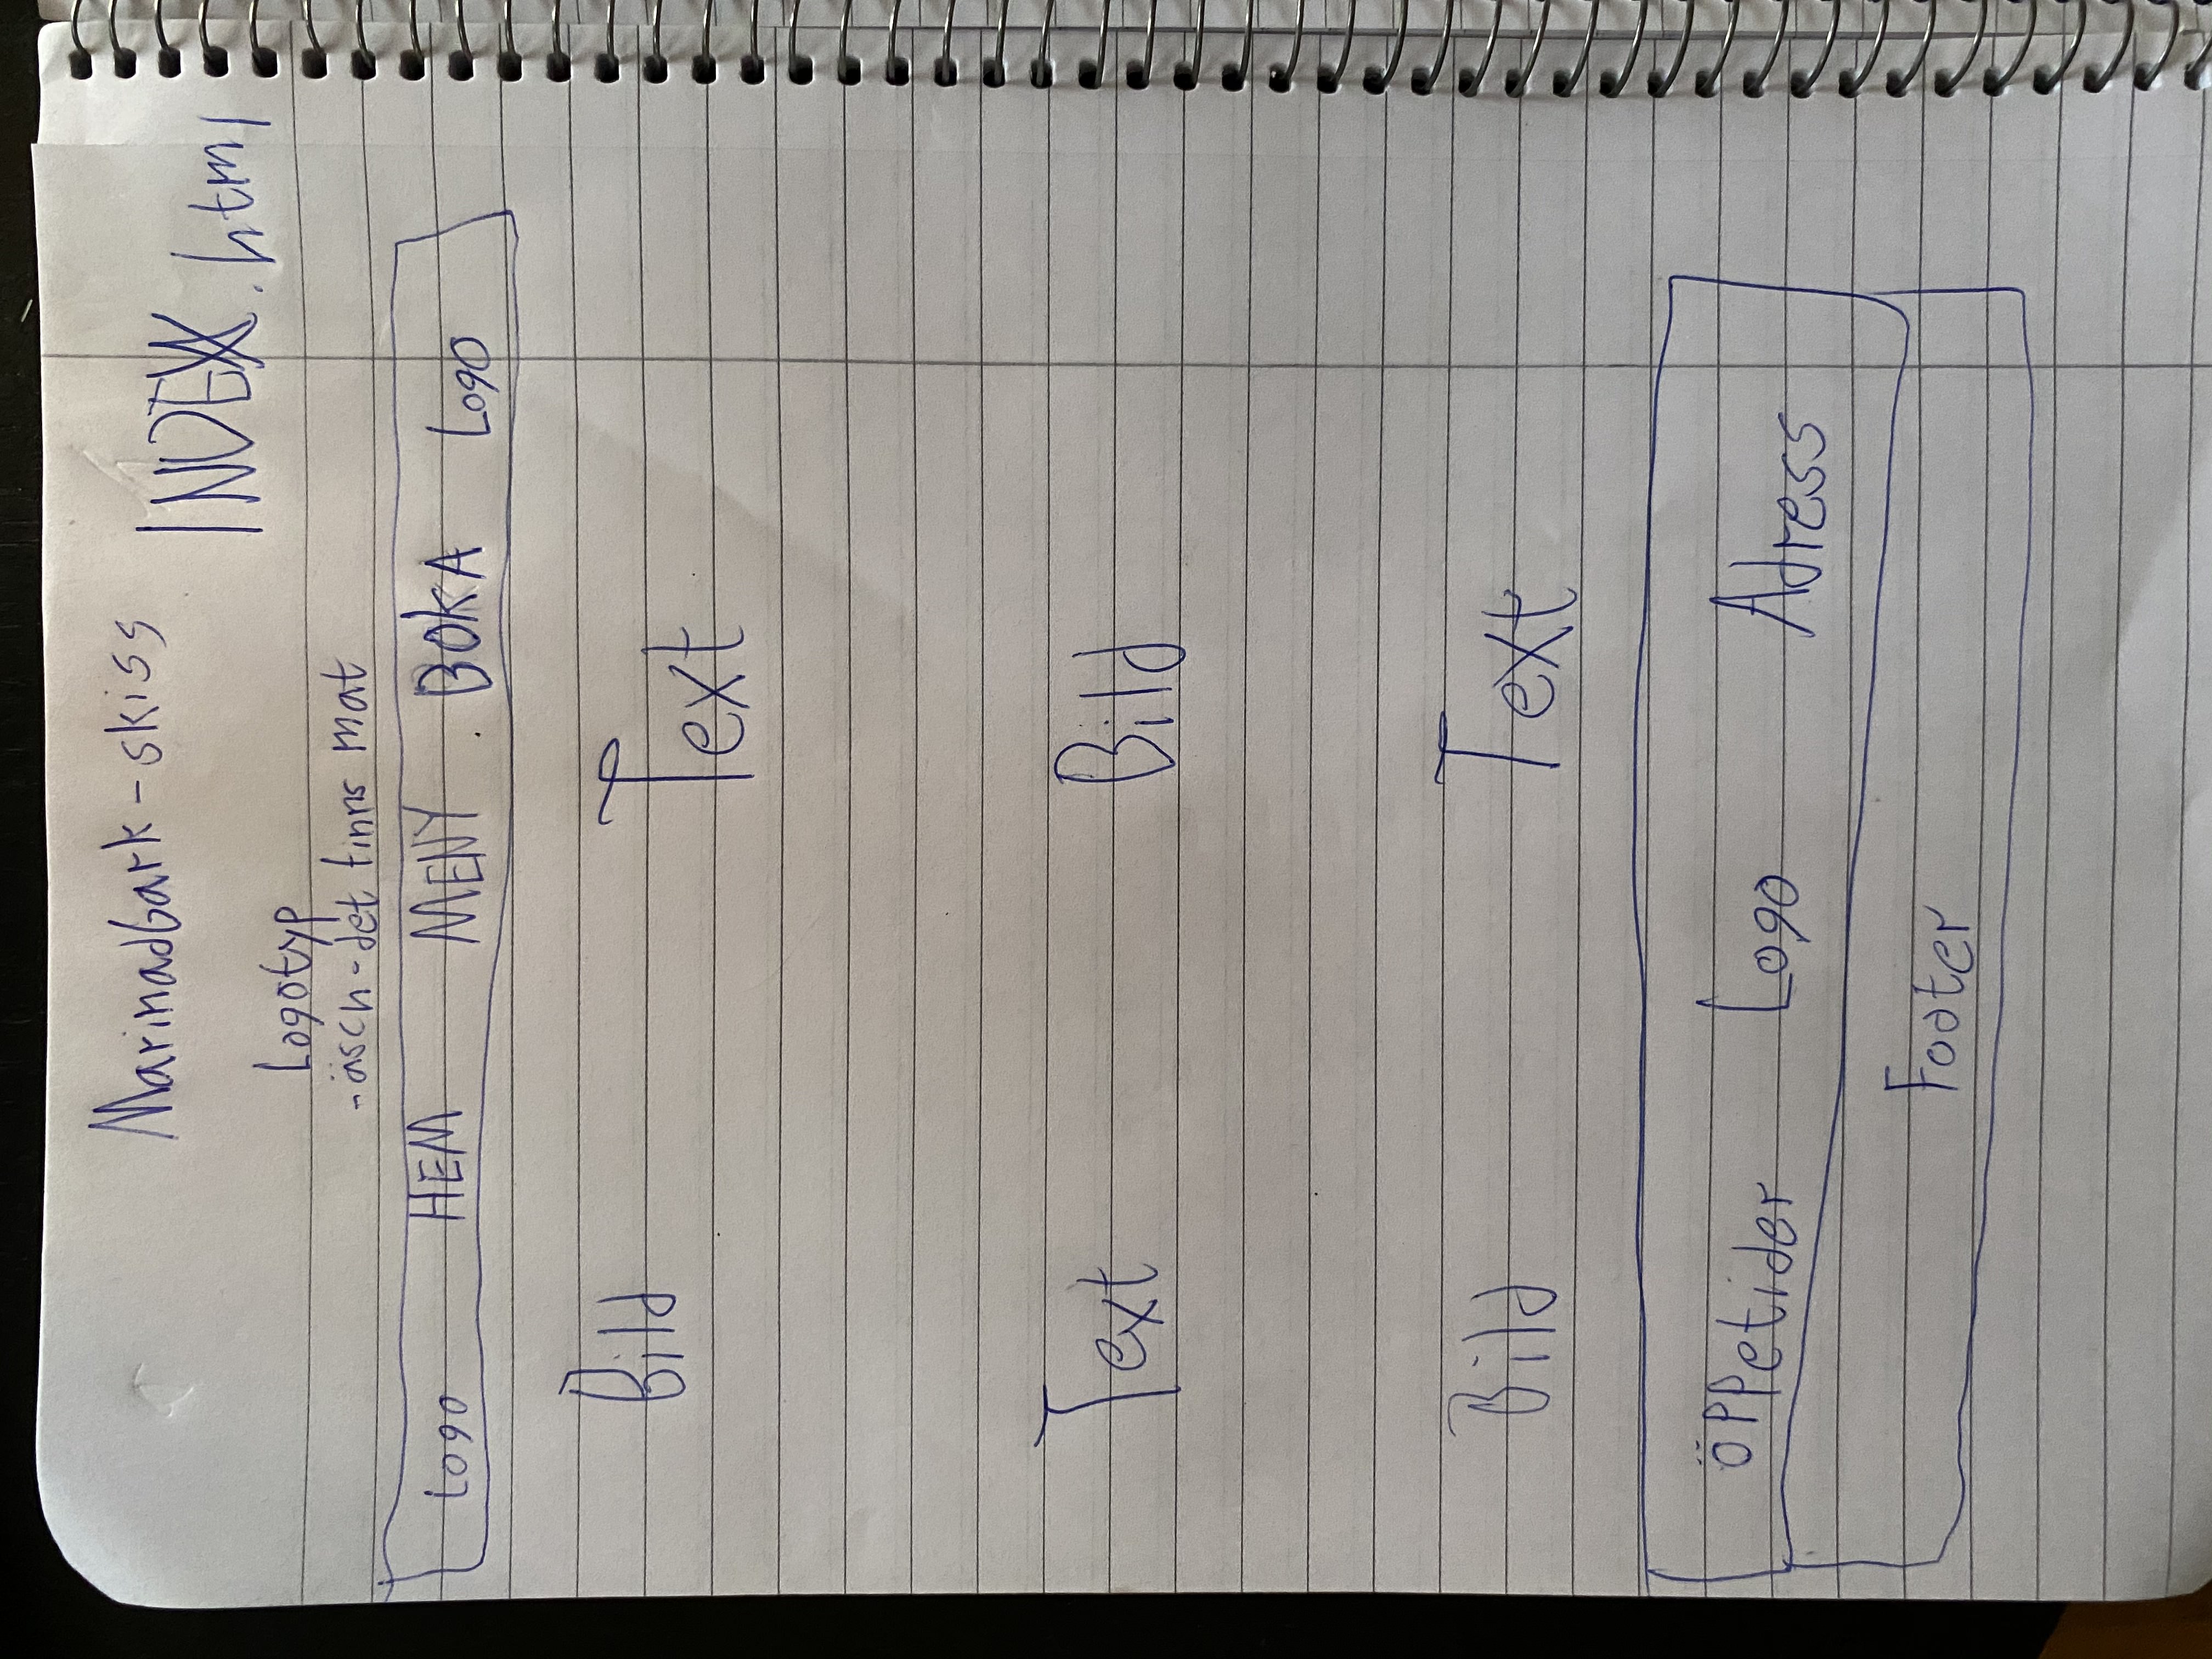 Marinadbark - skiss
INDEX.html
Logotyp
- äsch - det finns mat
Logo HEM MENY BOKA Logo
Bild Text
Text Bild
Bild Text
öppetider Logo Adress
Footer